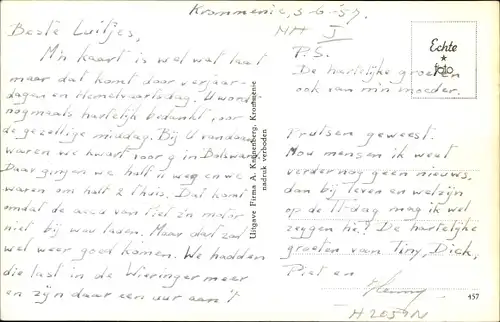 Krommenie, 3-6-'57.
Beste Luitjes,
M'n kaart is wel wat laat
maar dat komt door verjaar-
dagen en Hemelvaartsdag. U word
nogmaals hartelijk bedankt, voor
de gezellige middag. Bij U vandaan
waren we kwart voor 9 in Bolsward
Daar gingen we half 11 weg en we
waren om half 2 thuis. Dat komt
omdat de accu van Piet z'n motor
niet bij wou laden. Maar dat zal
wel weer goed komen. We hadden
die last in de Wieringermeer
en zijn daar een uur aan 't
MH I
P.S.
De hartelijke groeten
ook van mijn moeder.
Echte
foto
Prutsen geweest.
Nou mensen ik weet
verder nog geen nieuws.
dan bij leven en welzijn
op de TT-dag mag ik wel
zeggen hè? De hartelijke
groeten van Tiny, Dick,
Piet en
Uitgave Firma A. Knijnenberg, Krommenie
nadruk verboden
457
H2059N